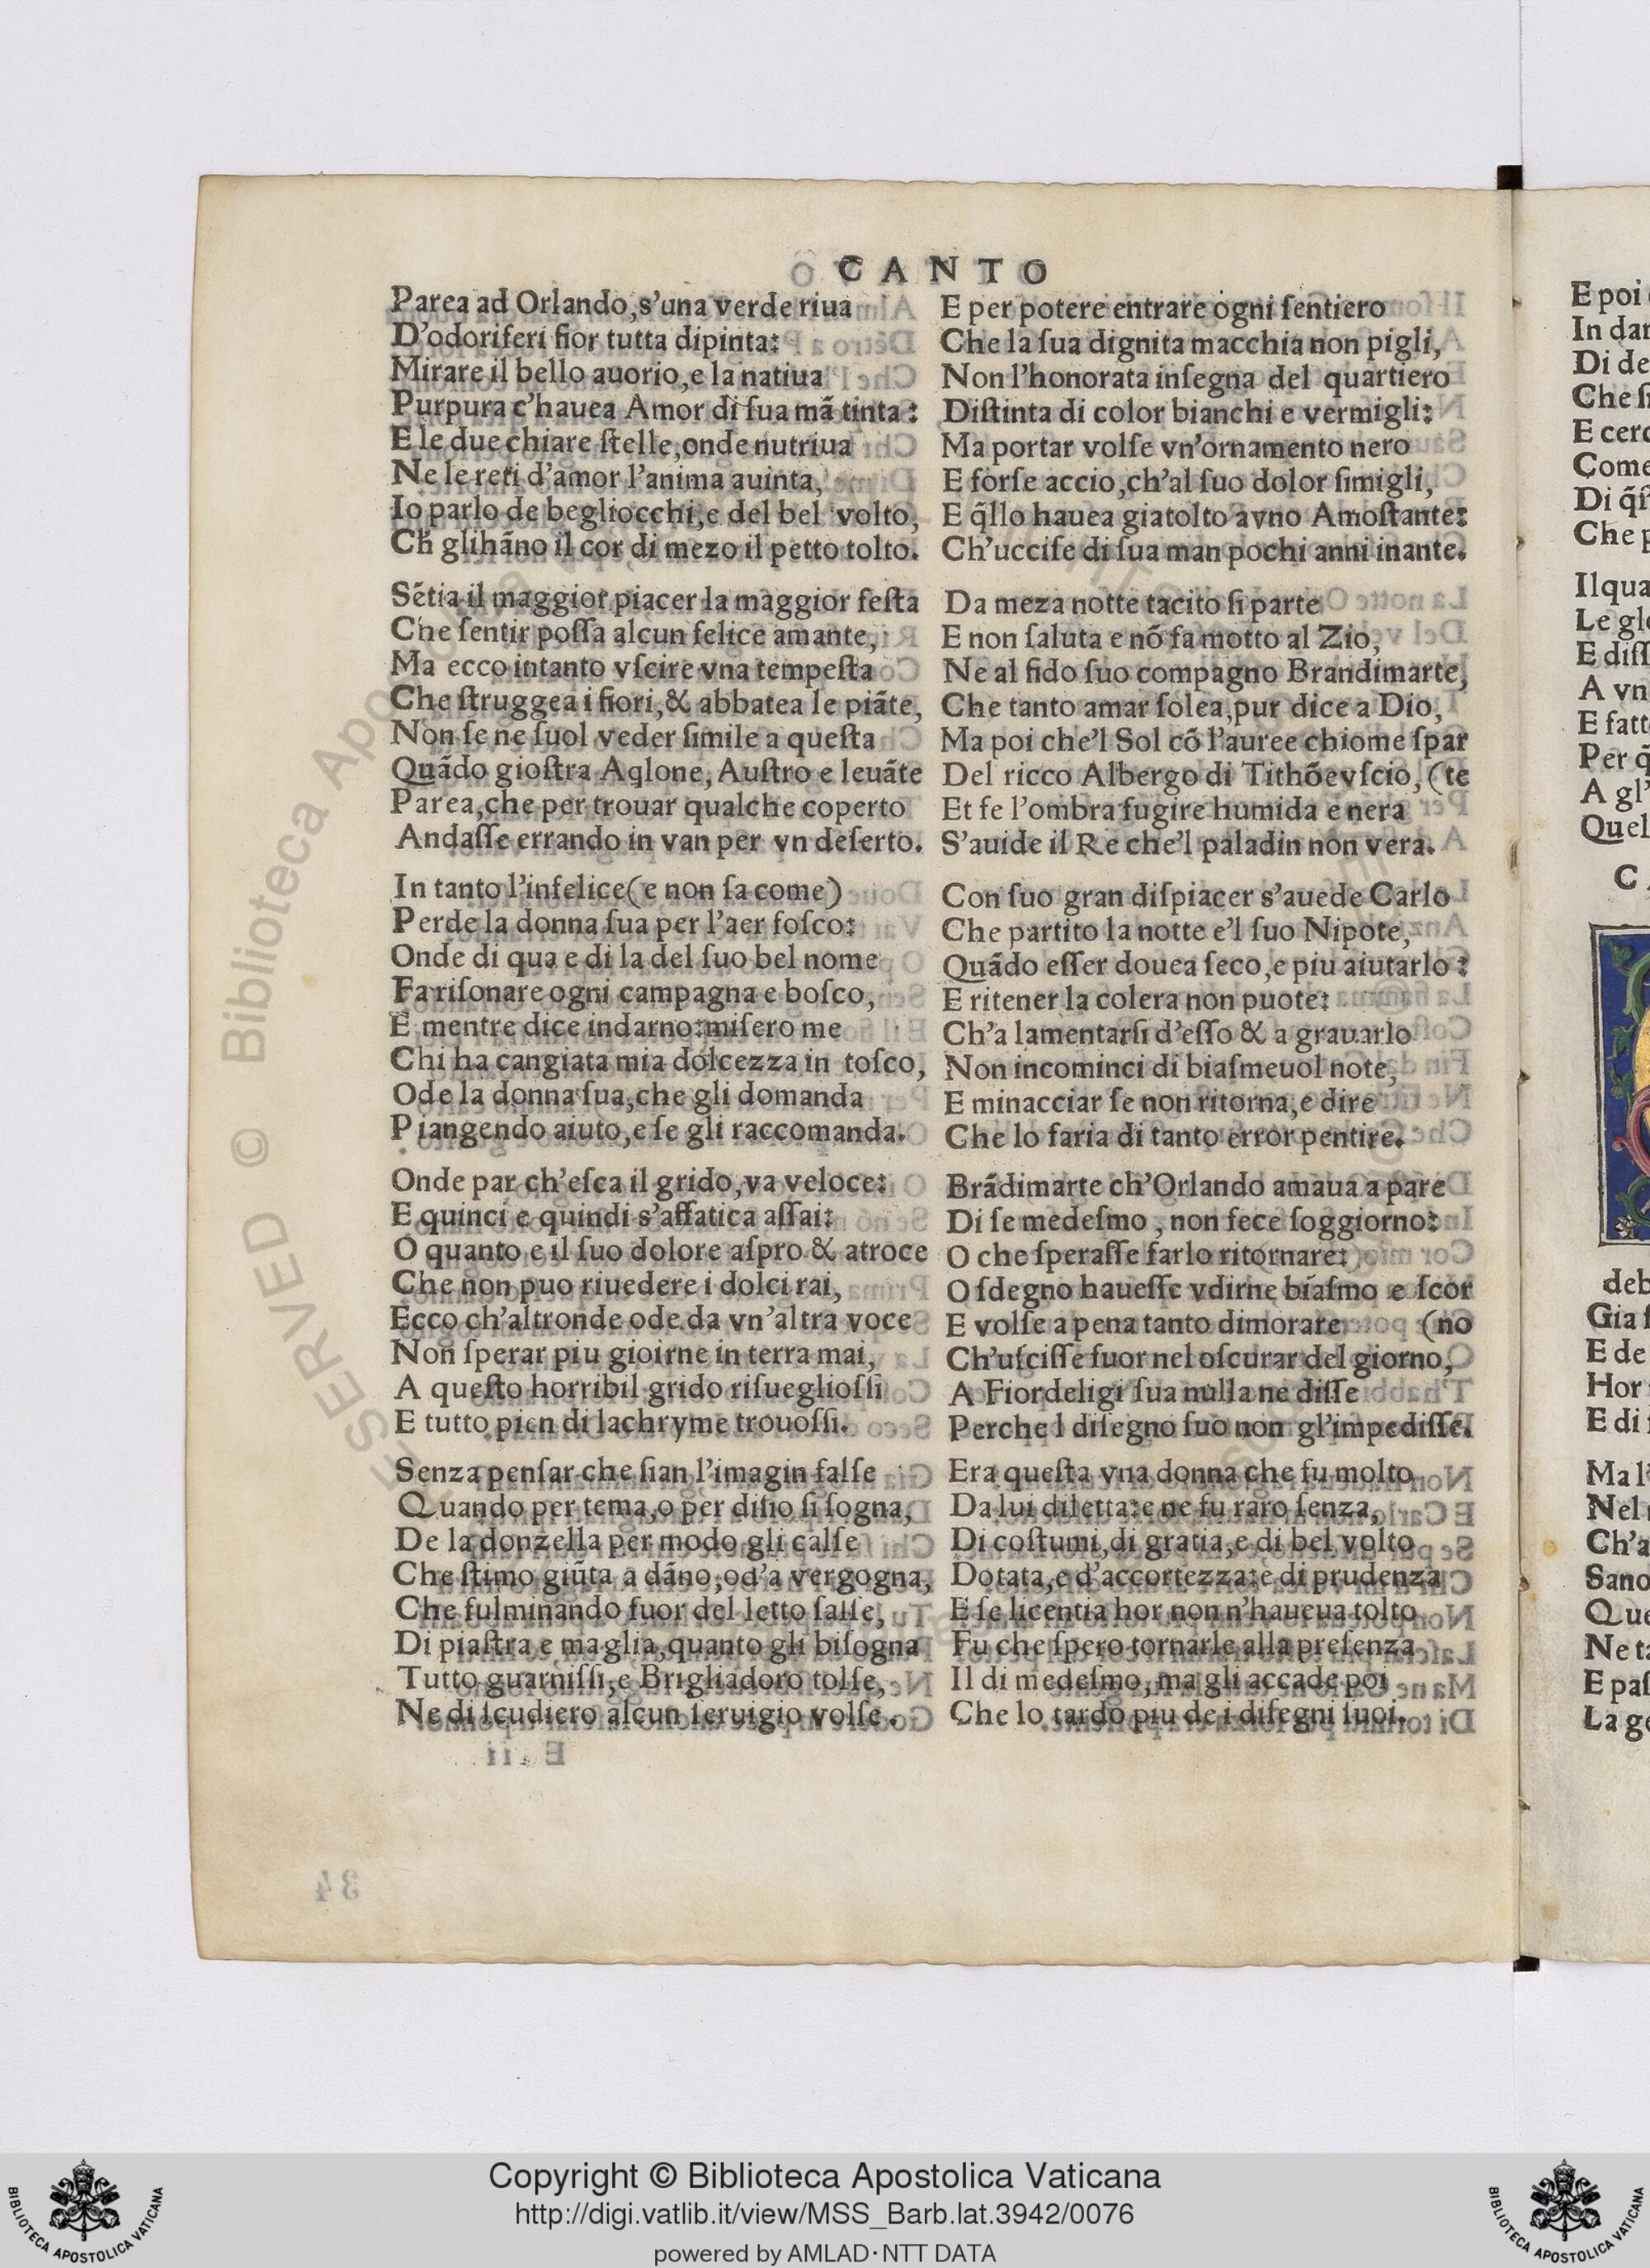 CANTO
Parea ad Orlando,s'una verde riua
D'odoriferi fior tutta dipinta:
Mirare il bello auorio,e la natiua
Purpura c'hauea Amor di ſua mã tinta:
E le due chiare ſtelle,onde nutriua
Ne le reti d'amor l'anima auinta,
Io parlo de begliocchi,e del bel volto,
Cħ glihãno il cor di mezo il petto tolto.
Sẽtia il maggior piacer la maggior feſta
Che ſentir poſſa alcun felice amante,
Ma ecco intanto vſcire vna tempeſta
Che ſtruggea i fiori,& abbatea le piãte,
Non ſe ne ſuol veder ſimile a queſta
Quãdo gioſtra Aqlone, Auſtro e leuãte
Parea,che per trouar qualche coperto
Andaſſe errando in van per vn deſerto.
In tanto l'infelice(e non ſa come)
Perde la donna ſua per l'aer foſco:
Onde di qua e di la del ſuo bel nome
Fa riſonare ogni campagna e boſco,
E mentre dice indarno:miſero me
Chi ha cangiata mia dolcezza in toſco,
Ode la donna ſua,che gli domanda
Piangendo aiuto,e ſe gli raccomanda.
Onde par ch'eſca il grido,va veloce:
E quinci e quindi s'affatica aſſai:
O quanto e il ſuo dolore aſpro & atroce
Che non puo riuedere i dolci rai,
Ecco ch'altronde ode da vn'altra voce
Non ſperar piu gioirne in terra mai,
A queſto horribil grido riſueglioſſi
E tutto pien di lachryme trouoſſi.
Senza penſar che ſian l'imagin falſe
Quando per tema,o per diſio ſi ſogna,
De la donzella per modo gli calſe
Che ſtimo giũta a dãno,od'a vergogna,
Che fulminando fuor del letto ſalſe,
Di piaſtra e maglia,quanto gli biſogna
Tutto guarniſſi,e Brigliadoro tolſe,
Ne di ſcudiero alcun ſeruigio volſe.
E per potere entrare ogni ſentiero
Che la ſua dignita macchia non pigli,
Non l'honorata inſegna del quartiero
Diſtinta di color bianchi e vermigli:
Ma portar volſe vn'ornamento nero
E forſe accio,ch'al ſuo dolor ſimigli,
E q̃llo hauea giatolto avno Amoſtante:
Ch'uccife di ſua man pochi anni inante.
Da meza notte tacito ſi parte
E non ſaluta e nõ fa motto al Zio,
Ne al fido ſuo compagno Brandimarte,
Che tanto amar ſolea,pur dice a Dio,
Ma poi che'l Sol cõ l'auree chiome ſpar
Del ricco Albergo di Tithõevſcio, (te
Et fe l'ombra fugire humida e nera
S'auide il Re che'l paladin non vera.
Con ſuo gran diſpiacer s'auede Carlo
Che partito la notte e'l ſuo Nipote,
Quãdo eſſer douea ſeco,e piu aiutarlo:
E ritener la colera non puote:
Ch'a lamentarſi d'eſſo & a grauarlo
Non incominci di biaſmeuol note,
E minacciar ſe non ritorna,e dire
Che lo faria di tanto error pentire.
Brãdimarte ch'Orlando amaua a pare
Di ſe medeſmo , non fece ſoggiorno:
O che ſperaſſe farlo ritornare:
O ſdegno haueſſe vdirne biaſmo e ſcor
E volſe a pena tanto dimorare (no
Ch'uſciſſe fuor nel oſcurar del giorno,
A Fiordeligi ſua nulla ne diſſe
Perche l diſegno ſuo non gl'impediſſe.
Era queſta vna donna che fu molto
Da lui diletta:e ne fu raro ſenza,
Di coſtumi,di gratia,e di bel volto
Dotata,e d'accortezza:e di prudenza
E ſe licentia hor non n'haueua tolto
Fu che ſpero tornarle alla preſenza
Il di medeſmo,ma gli accade poi
Che lo tardo piu de i diſegni ſuoi.
E poi
In dar
Di de
E cerc
Come
Che p
Ilqua
Le gl
E diſſ
A vn
E fatt
A gl'
Quel
deb
E de
Hor
E di
Ma l'
Nel
Ch'a
Sano
Que
Ne ta
E paſ
La ge
RESERVED © Biblioteca Apo
34
Copyright © Biblioteca Apostolica Vaticana
http://digi.vatlib.it/view/MSS_Barb.lat.3942/0076
powered by AMLAD·NTT DATA
BIBLIOTECA APOSTOLICA VATICANA
BIBLIOTECA APOSTOLICA VATICANA